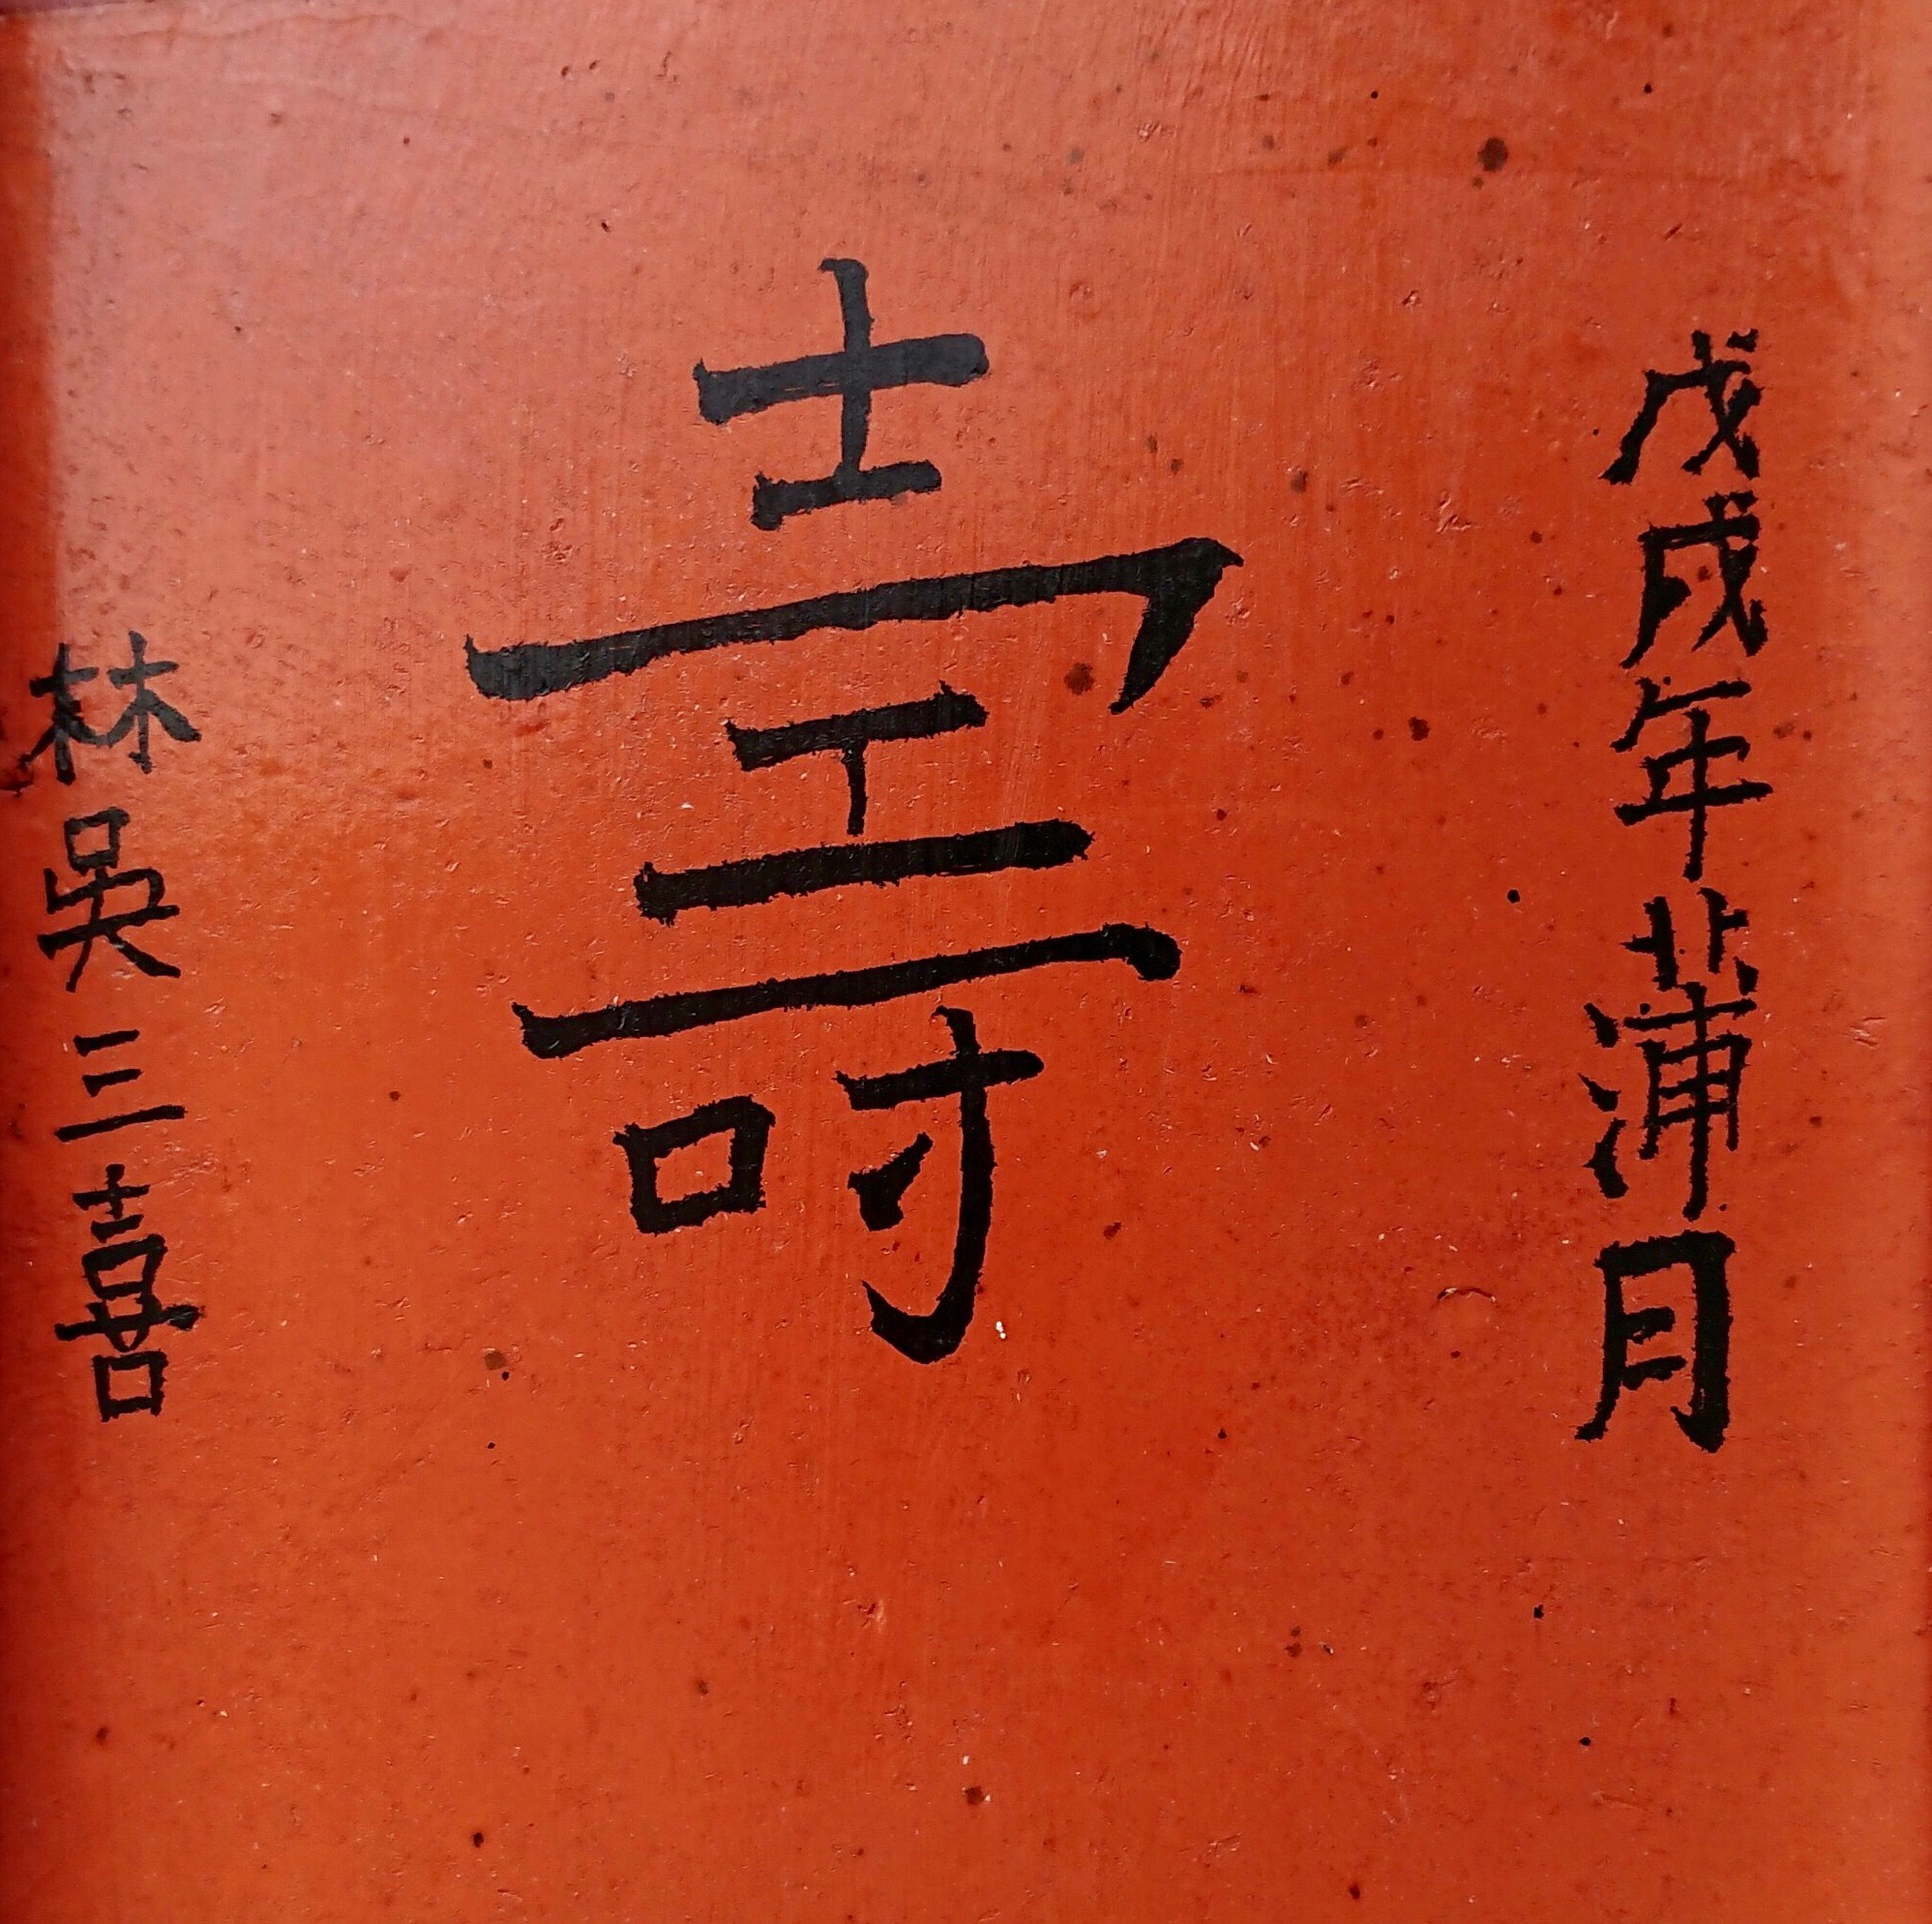 戊戌年蒲月
壽
林吳三喜